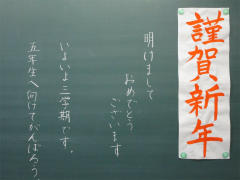 謹賀新年
明けまして
おめでとう
ございます
いよいよ三学期です。
五年生へ向けてがんばろう。